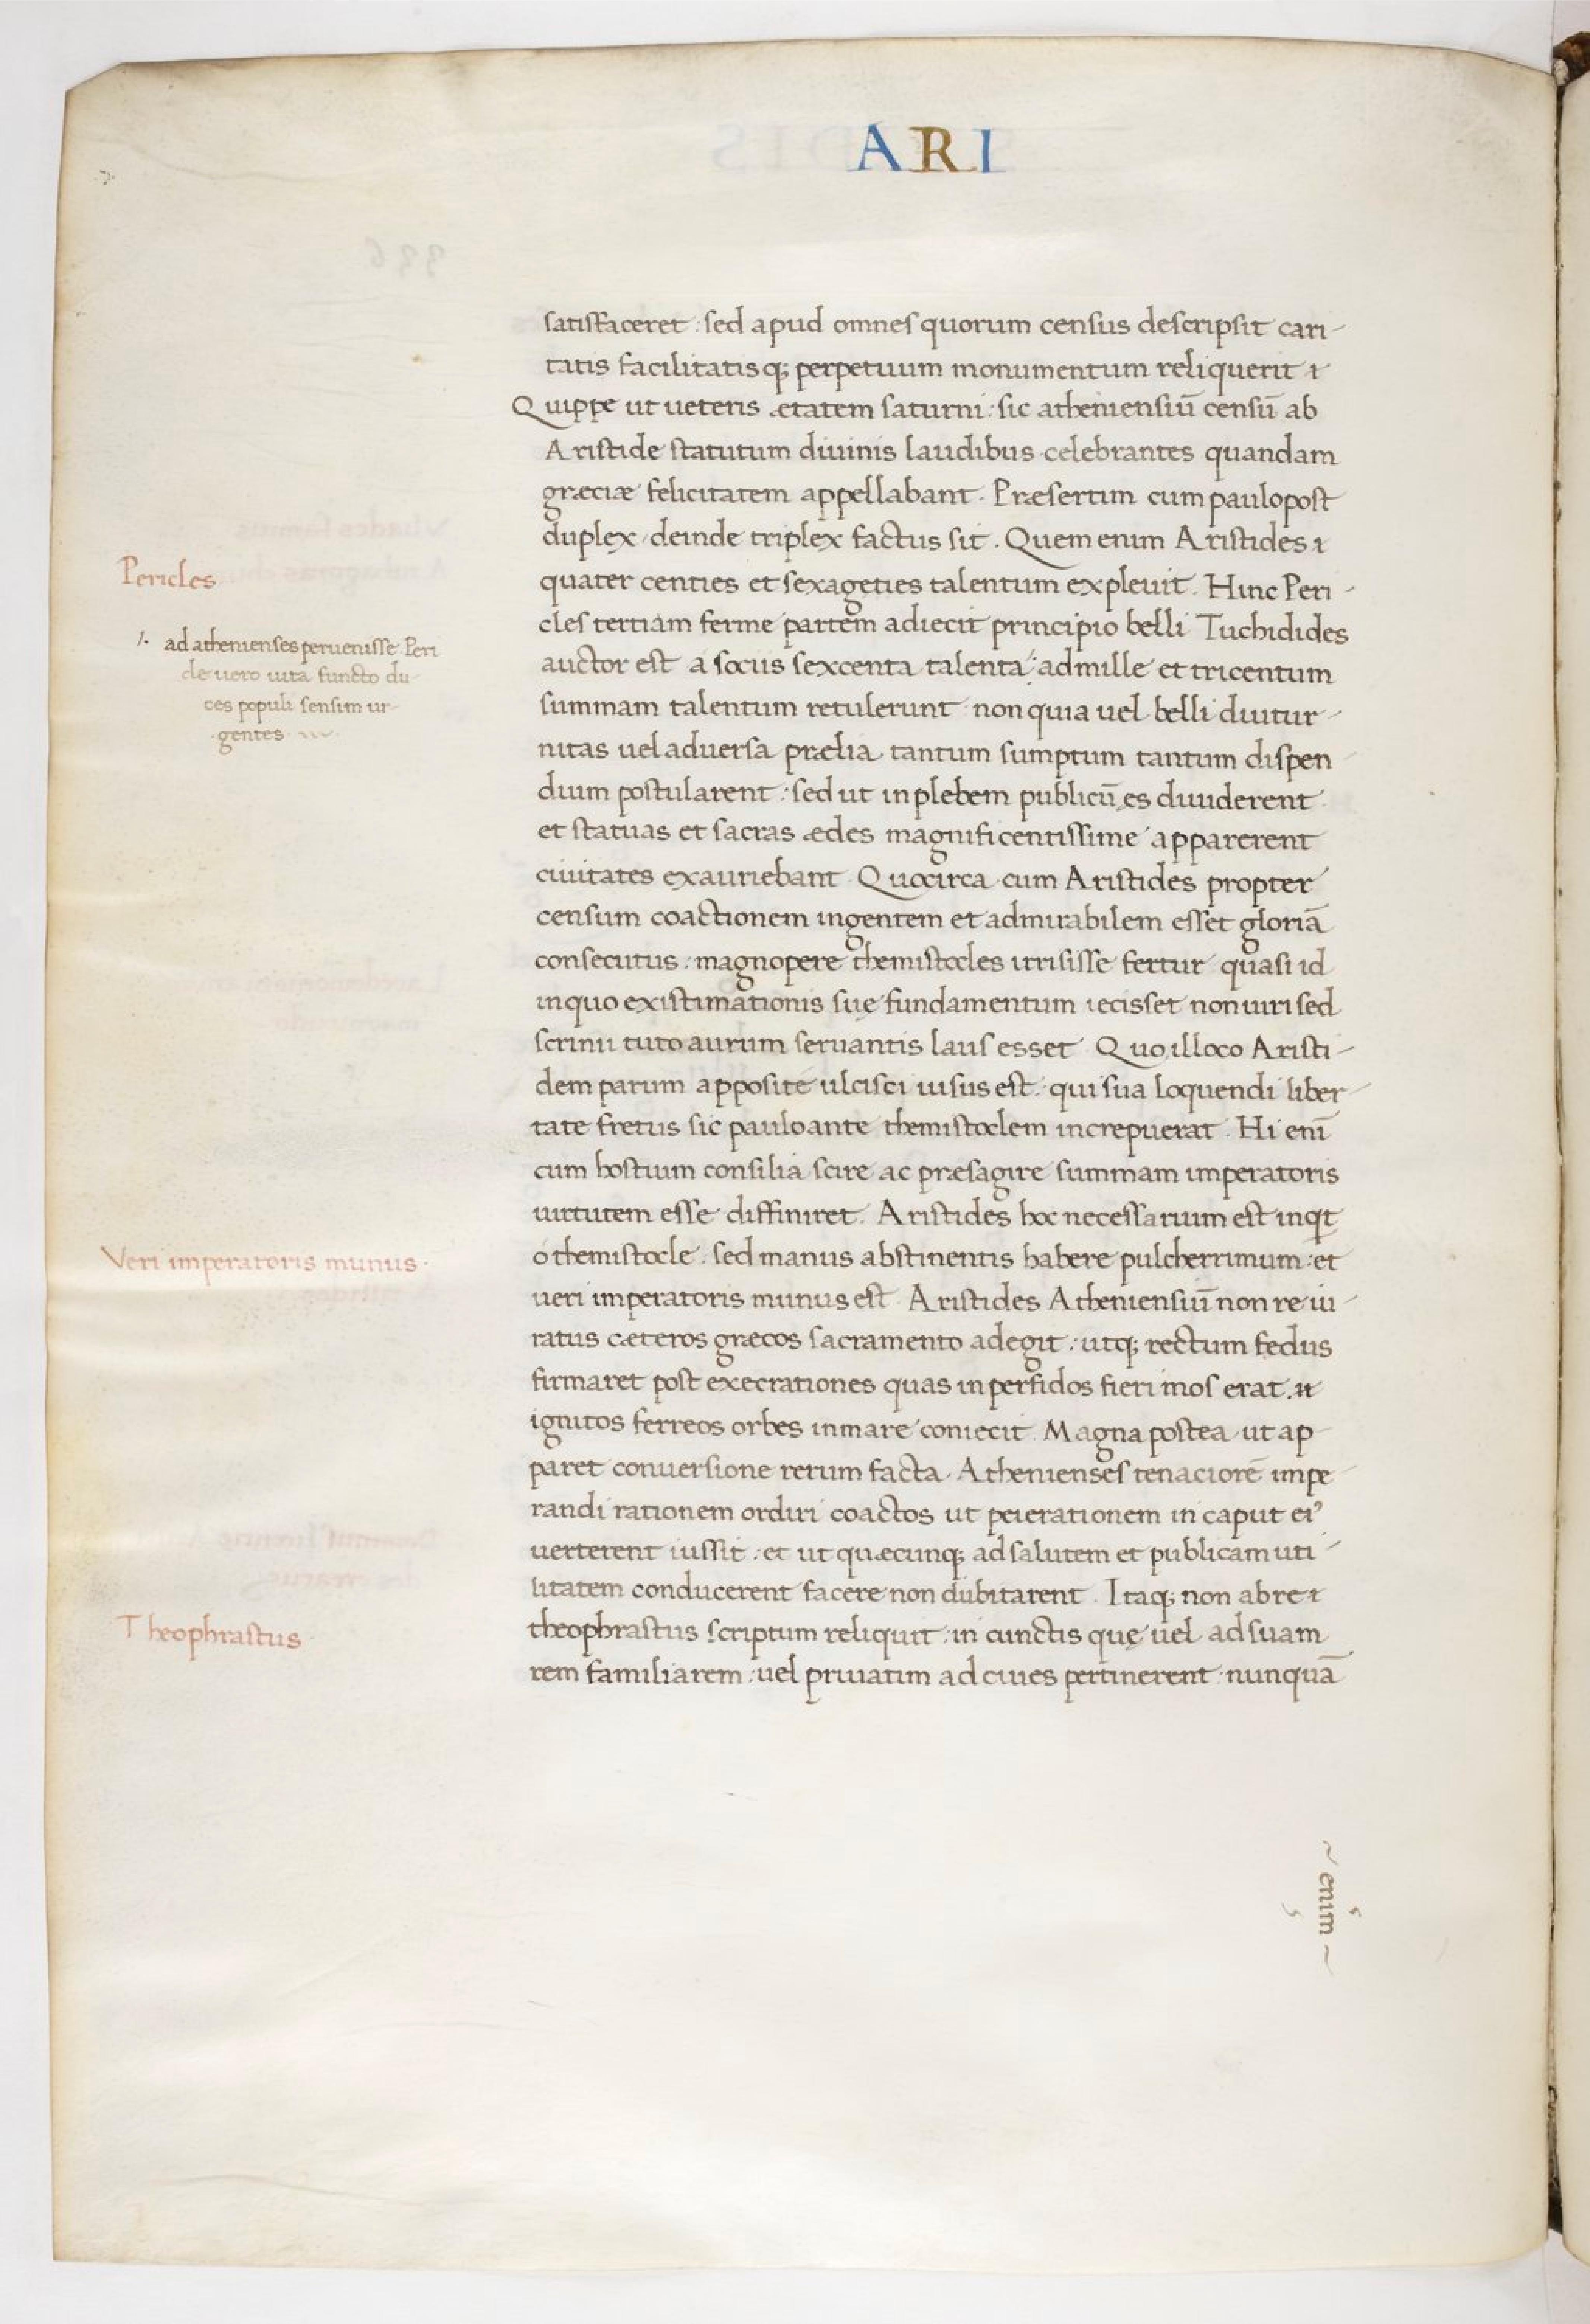 ARI
satisfaceret : sed apud omnes quorum census descripsit cari-
tatis facilitatisq; perpetuum monumentum reliquerit
Quippe ut ueteris ætatem saturni : sic atheniensiū censū ab
Aristide statutum diuinis laudibus celebrantes quandam
græciæ felicitatem appellabant . Præsertim cum paulopost
duplex deinde triplex factus sit . Quem enim Aristides
quater centies et sexageties talentum expleuit . Hinc Peri-
cles tertiam ferme partem adiecit principio belli Tuchidides
auctor est a sociis sexcenta talenta : ad mille et tricentum
summam talentum retulerunt non quia uel belli diutur-
nitas uel aduersa prælia tantum sumptum tantum dispen-
dium postularent : sed ut in plebem publicū es diuiderent
et statuas et sacras ædes magnificentissime apparerent
ciuitates exauriebant Quocirca cum Aristides propter
censum coactionem ingentem et admirabilem esset gloriā
consecutus : magnopere themistocles irrisisse fertur quasi id
in quo existimationis suę fundamentum iecisset non uiri sed
scrinii tuto aurum seruantis laus esset Quo illoco Aristi-
dem parum apposite ulcisci uisus est : qui sua loquendi liber-
tate fretus sic paulo ante themistoclem increpuerat . Hi enī
cum hostium consilia scire ac præsagire summam imperatoris
uirtutem esse diffiniret . Aristides hoc necessarium est inqt
o themistocle . sed manus abstinentis habere pulcherrimum : et
ueri imperatoris munus est Aristides Atheniensiū non re iu-
ratus cæteros græcos sacramento adegit : utq; rectum fedus
firmaret post execrationes quas in perfidos fieri mos erat .
ignitos ferreos orbes in mare coniecit . Magna postea ut ap-
paret conuersione rerum facta . Athenienses tenaciorē impe-
randi rationem ordiri coactos ut peierationem in caput ei⁹
uerterent iussit : et ut quæcunq; ad salutem et publicam uti-
litatem conducerent facere non dubitarent . Itaq; non abre
theophrastus scriptum reliquit : in cunctis quę uel ad suam
rem familiarem : uel priuatim ad ciues pertinerent nunquā
Pericles
/. ad athenienses peruenisse Peri
cle uero uita functo du-
ces populi sensim ur-
gentes
Veri imperatoris munus .
Theophrastus .
~ enim ~